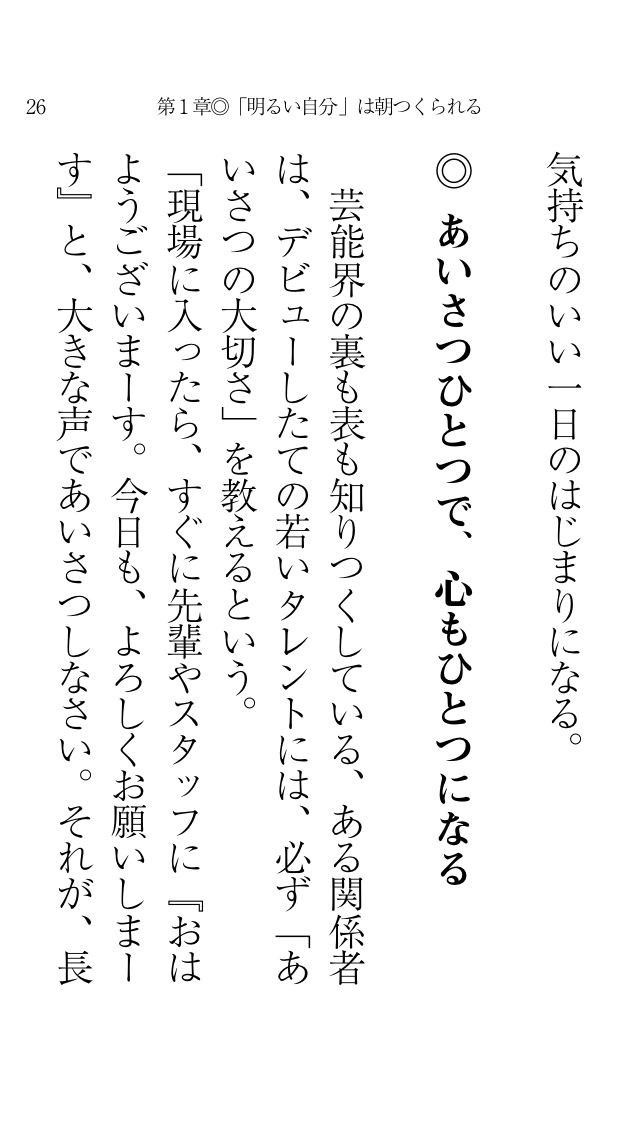 26
第1章◎「明るい自分」は朝つくられる
気持ちのいい一日のはじまりになる。
◎ あいさつひとつで、心もひとつになる
芸能界の裏も表も知りつくしている、ある関係者
は、デビューしたての若いタレントには、必ず「あ
いさつの大切さ」を教えるという。
「現場に入ったら、すぐに先輩やスタッフに『おは
ようございまーす。今日も、よろしくお願いしまー
す』と、大きな声であいさつしなさい。それが、長